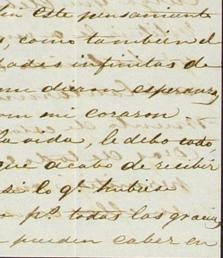 en este pensamiento
, como tambien el
infinitas de
me dieron esperanzas
mi corazon.
la vida, le debo todo
que acabo de recibir
si lo qe. hubiese
pr. todas las gracias
pueden caber en